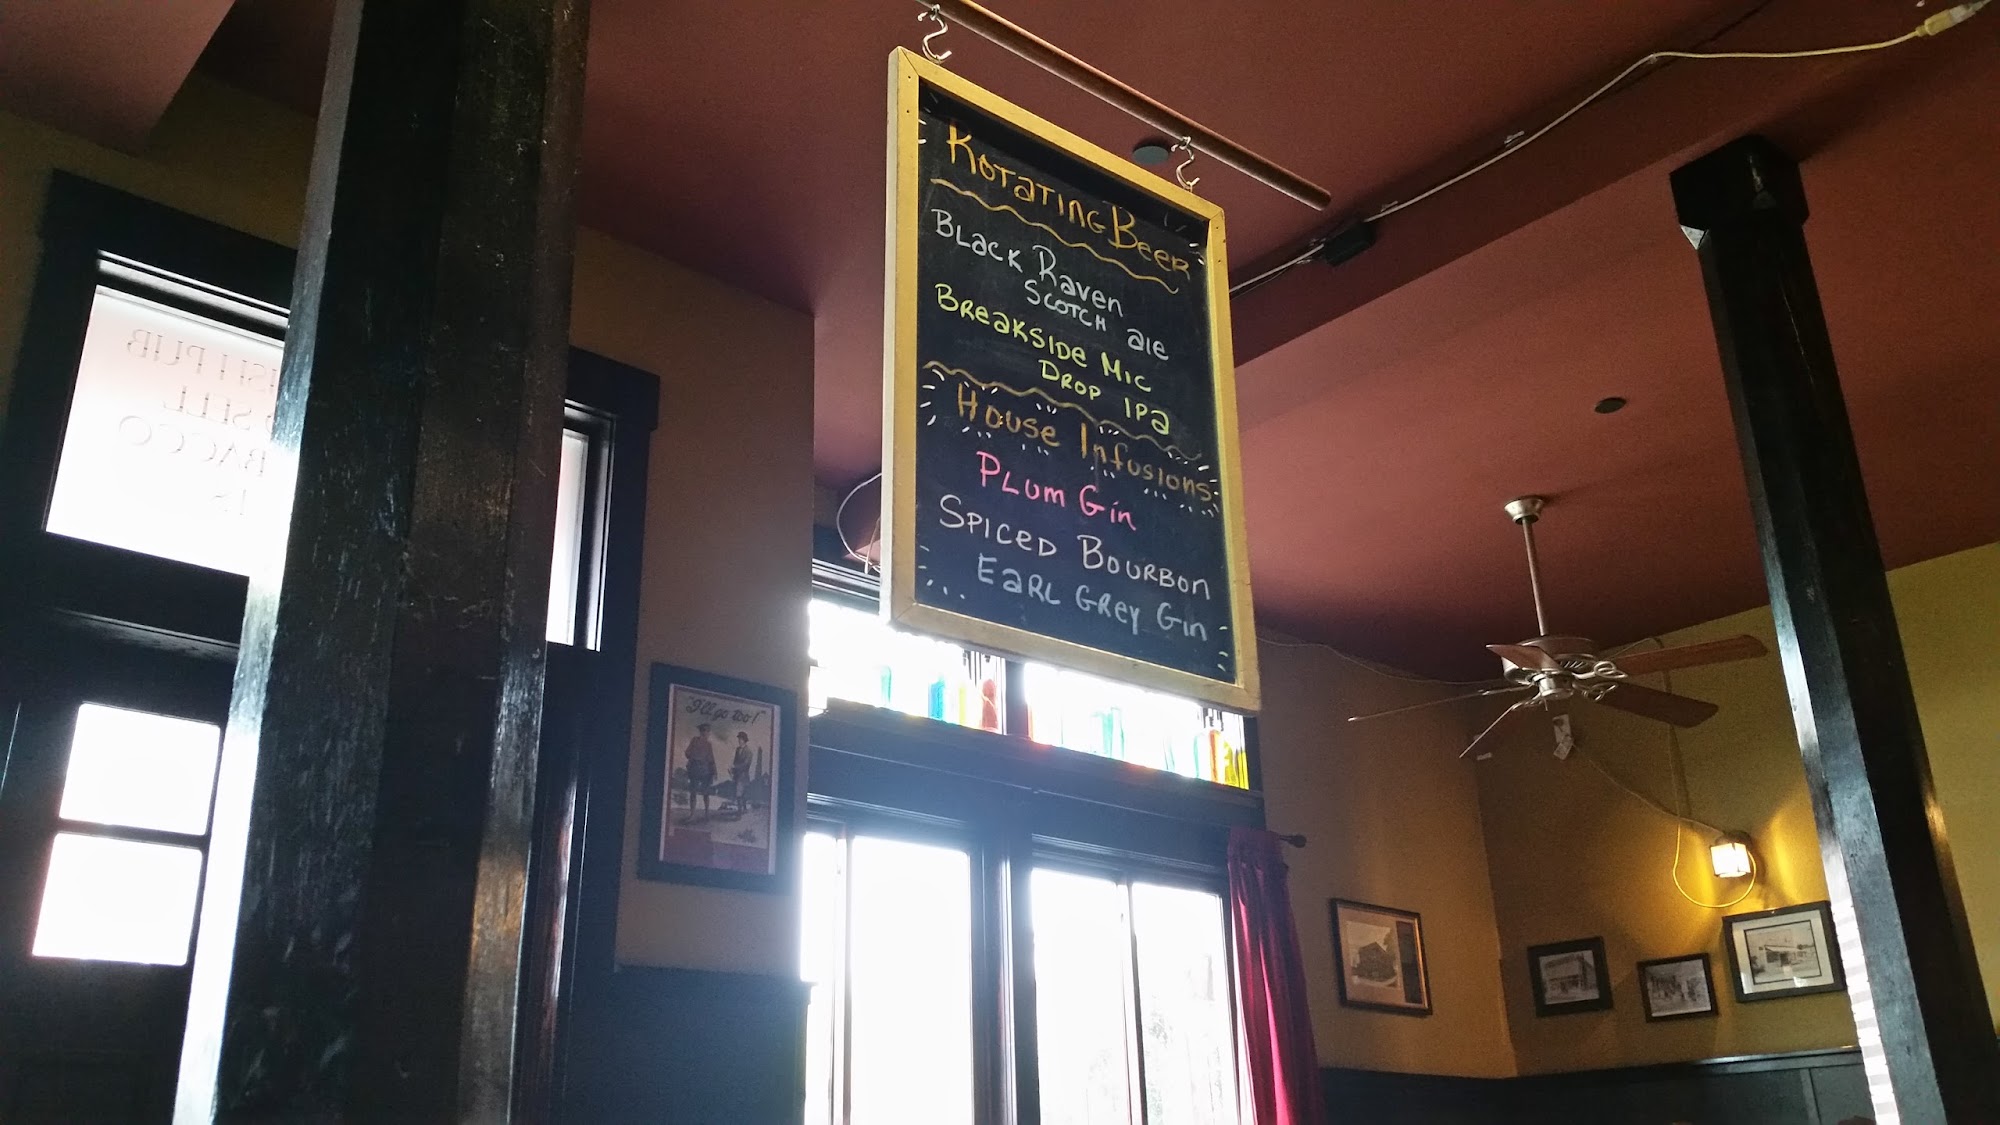 Rotating Beer
Black Raven
Scotch ale
Breakside Mic
Drop IPA
House Infusions
Plum Gin
Spiced Bourbon
Earl Grey Gin
"I'll go too!"
PUB
SELL